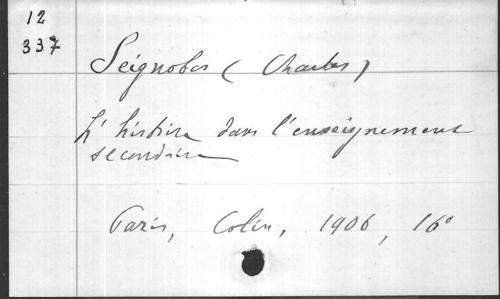 12
337
Seignobos (Charles)
L'histoire dans l'enseignement
secondaire
Paris, Colin, 1906, 16º